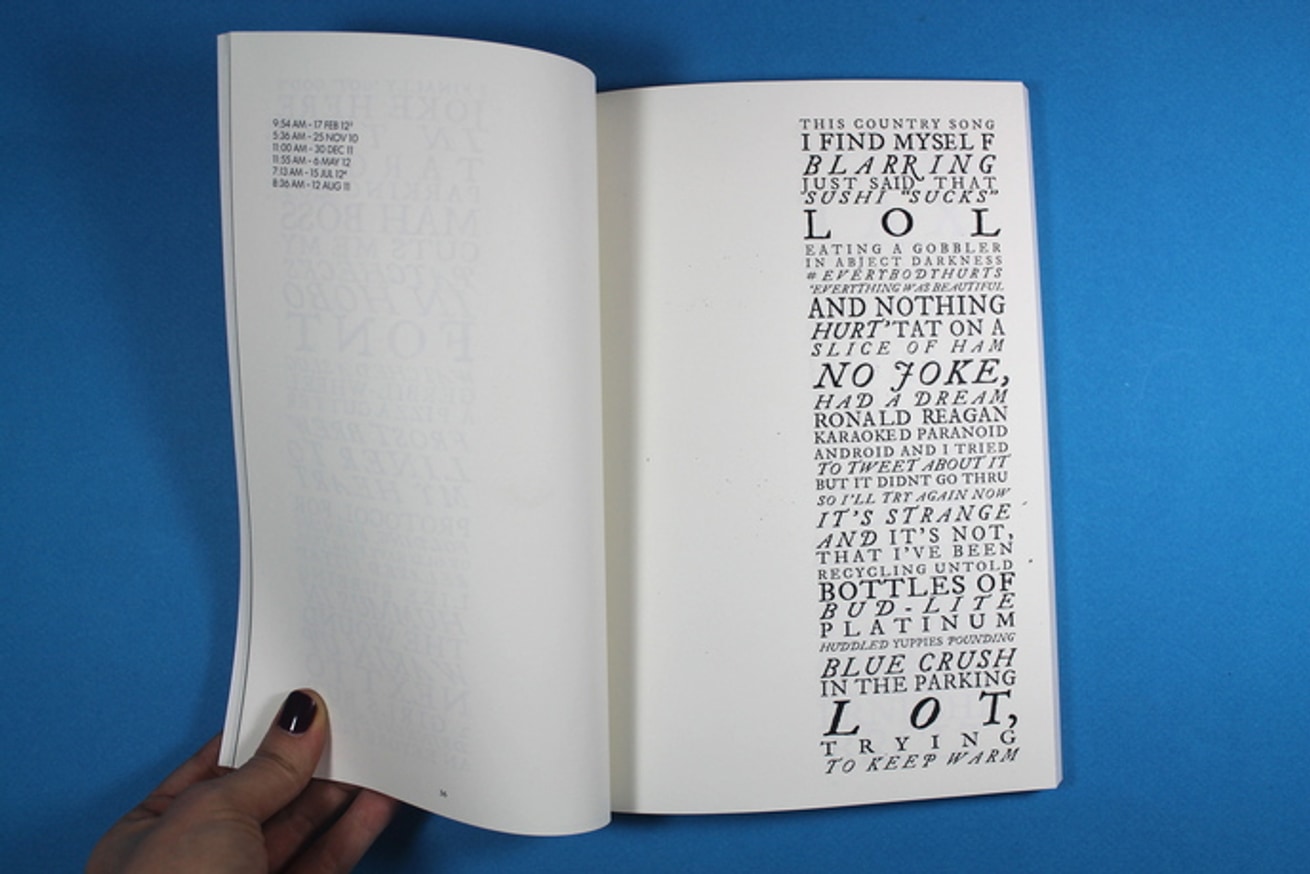 9:54 AM - 17 FEB 12³
5:36 AM - 25 NOV 10
11:00 AM - 30 DEC 11
11:55 AM - 6 MAY 12
7:13 AM - 15 JUL 12⁴
8:36 AM - 12 AUG 11
THIS COUNTRY SONG
I FIND MYSELF
BLARRING
JUST SAID THAT
"SUSHI "SUCKS"
LOL
EATING A GOBBLER
IN ABJECT DARKNESS
#EVERYBODYHURTS
"EVERYTHING WAS BEAUTIFUL
AND NOTHING
HURT" TAT ON A
SLICE OF HAM
NO JOKE,
HAD A DREAM
RONALD REAGAN
KARAOKED PARANOID
ANDROID AND I TRIED
TO TWEET ABOUT IT
BUT IT DIDNT GO THRU
SO I'LL TRY AGAIN NOW
IT'S STRANGE
AND IT'S NOT,
THAT I'VE BEEN
RECYCLING UNTOLD
BOTTLES OF
BUD-LITE
PLATINUM
HUDDLED YUPPIES POUNDING
BLUE CRUSH
IN THE PARKING
LOT,
TRYING
TO KEEP WARM